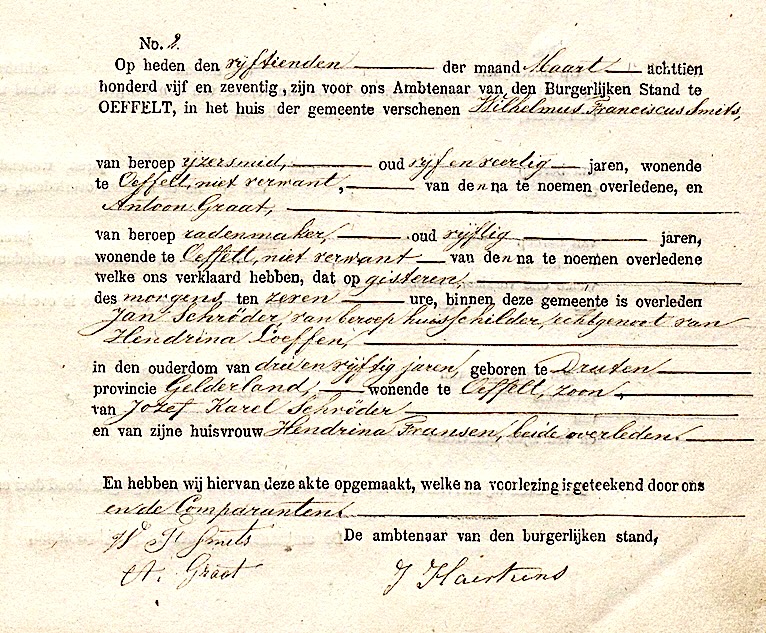 No. 2.
Op heden den vijftienden der maand Maart achttien
honderd vijf en zeventig, zijn voor ons Ambtenaar van den Burgerlijken Stand te
OEFFELT, in het huis der gemeente verschenen Wilhelmus Franciscus Smits,
van beroep ijzersmid, oud vijf en veertig jaren, wonende
te Oeffelt, niet verwant, van den na te noemen overledene, en
Antoon Graat,
van beroep radenmaker, oud vijftig jaren,
wonende te Oeffelt, niet verwant van den na te noemen overledene
welke ons verklaard hebben, dat op gisteren,
des morgens ten zeven ure, binnen deze gemeente is overleden
Jan Schröder, van beroep huisschilder, echtgenoot van
Hendrina Loeffen,
in den ouderdom van drie en vijftig jaren, geboren te Druten
provincie Gelderland, wonende te Oeffelt, zoon
van Jozef Karel Schröder
en van zijne huisvrouw Hendrina Fransen, beide overleden.
En hebben wij hiervan deze akte opgemaakt, welke na voorlezing is geteekend door ons
en de Comparanten.
W F Smits De ambtenaar van den burgerlijken stand,
A. Graat J Haerkens